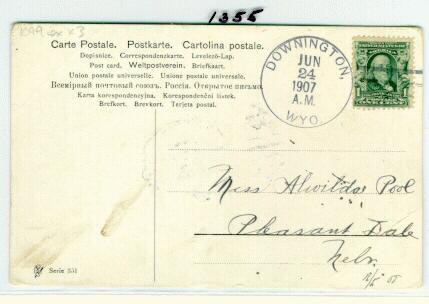 1355
Carte Postale. Postkarte. Cartolina postale.
Dopisnice. Correspondenzkarte. Levelező-Lap.
Post card. Weltpostverein. Briefkaart.
Union postale universelle. Unione postale universale.
Всемірный почтовый союзъ. Россія. Открытое письмо.
Karta korespondencyjna. Korespondenční lístek.
Brefkort. Brevkort. Tarjeta postal.
DOWNINGTON,
JUN
24
1907
A.M.
WYO.
Miss Alwilda Pool
Pleasant Dale
Nebr.
Serie 351